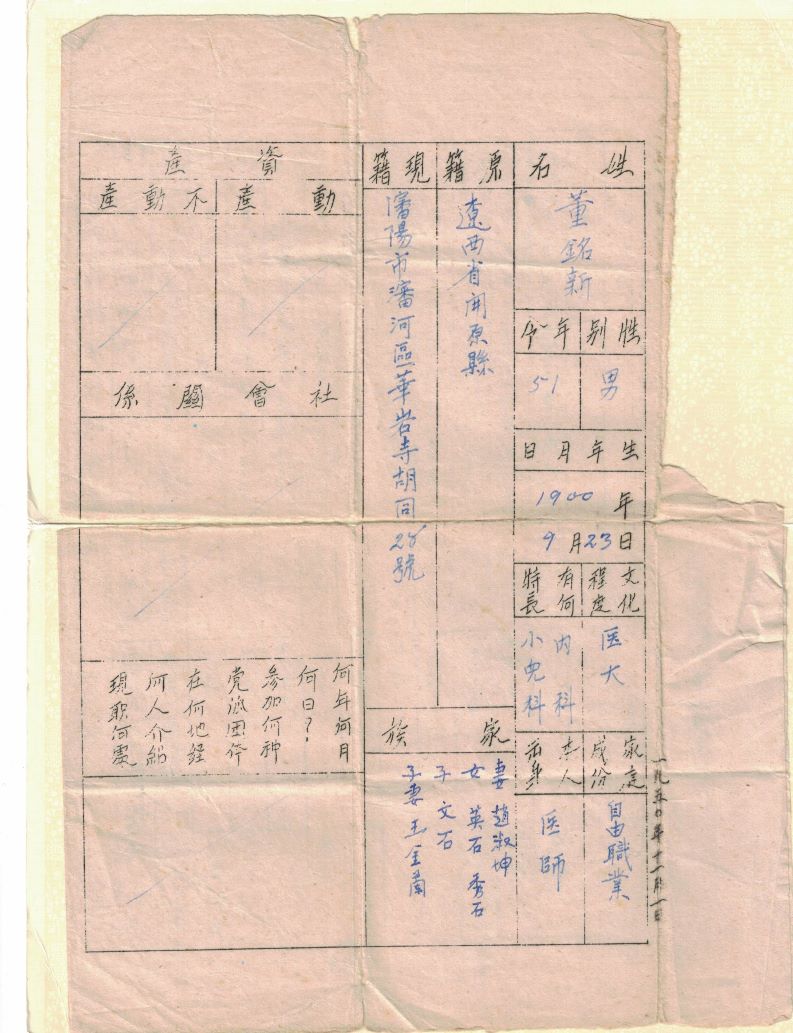 一九五〇年十一月一日
姓名
董銘新
性别
年令
男
51
生年月日
1900年
9月23日
文化程度
有何特長
医大
内科
小兒科
家庭成份
本人出身
自由職業
医師
原籍
遼西省開原縣
現籍
瀋陽市瀋河區華岩寺胡同28號
家族
妻 趙淑坤
女 英石 秀石
子 文石
子妻 王金蘭
資產
動產
不動產
社會關係
何年何月
何日?
參加何种
党派团体
在何地经
何人介紹
現职何處